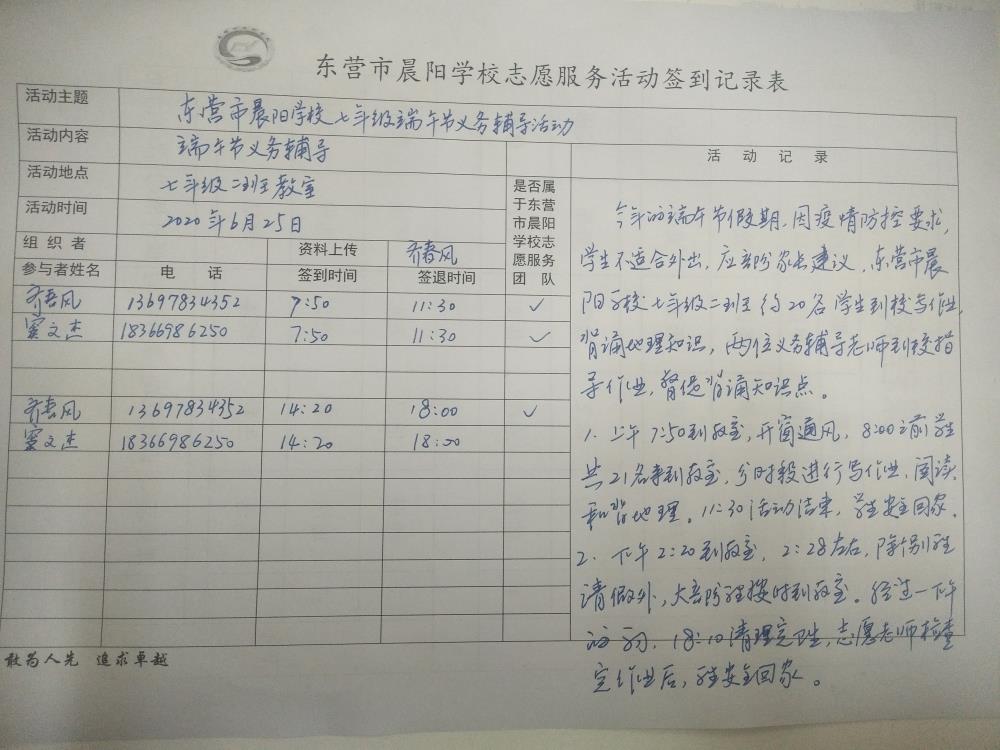 东营市晨阳学校志愿服务活动签到记录表
活动主题 东营市晨阳学校七年级端午节义务辅导活动
活动内容 端午节义务辅导
活动地点 七年级二班教室
活动时间 2020年6月25日
是否属于东营市晨阳学校志愿服务团队
活动记录
组织者 资料上传 齐春风
参与者姓名 电话 签到时间 签退时间
齐春风 13697834352 7:50 11:30 ✓
窦文杰 18366986250 7:50 11:30 ✓
齐春风 13697834352 14:20 18:00 ✓
窦文杰 18366986250 14:20 18:00
今年的端午节假期,因疫情防控要求,
学生不适合外出,应部分家长建议,东营市晨
阳学校七年级二班约20名学生到校写作业,
背诵地理知识,两位义务辅导老师到校指
导作业,督促背诵知识点。
1. 上午7:50到教室,开窗通风,8:00之前学生
共21名来到教室,分时段进行写作业,阅读
和背地理。11:30活动结束,学生安全回家.
2. 下午2:20到教室,2:28左右,除个别学生
请假外,大部分学生按时到教室。经过一下午
的学习,18:10清理完卫生,志愿老师检查
完作业后,学生安全回家。
敢为人先 追求卓越